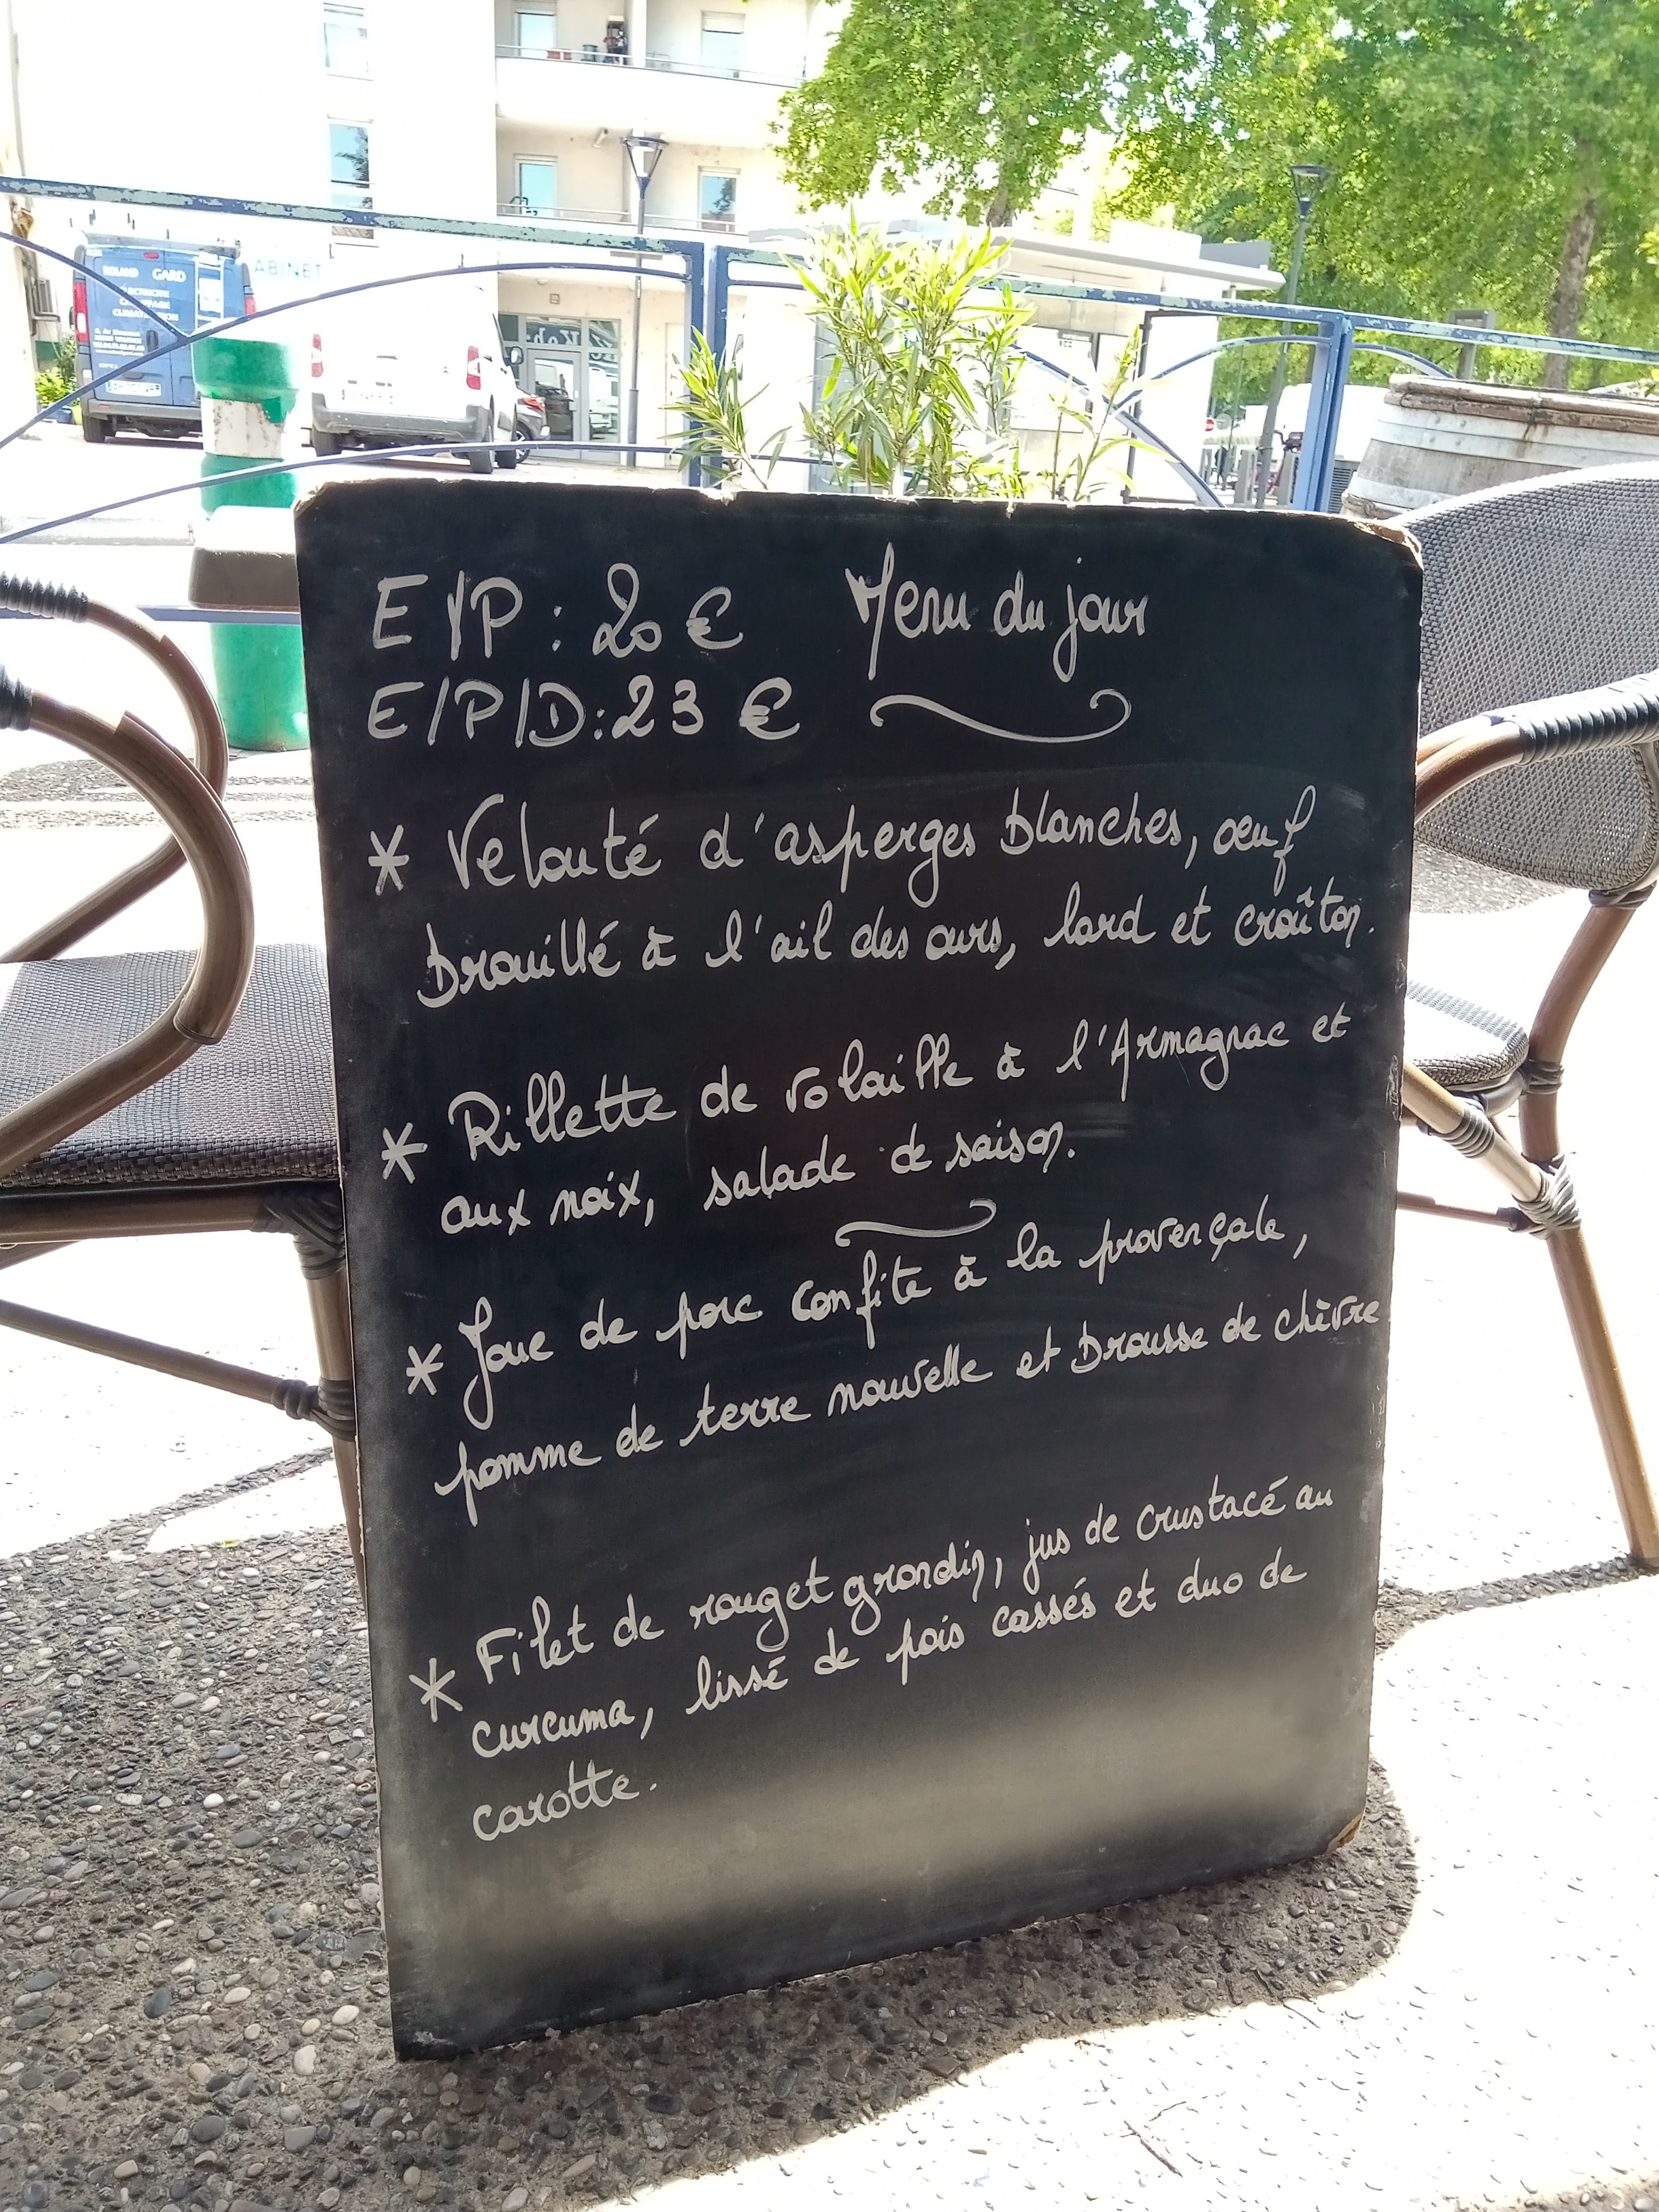 E/P : 20 € Menu du jour
E/P/D : 23 €
* Velouté d'asperges blanches, oeuf
brouillé à l'ail des ours, lard et croûton.
* Rillette de volaille à l'Armagnac et
aux noix, salade de saison.
* Joue de porc confite à la provençale,
pomme de terre nouvelle et brousse de chèvre
* Filet de rouget grondin, jus de crustacé au
curcuma, lissé de pois cassés et duo de
carotte.
ROLAND GARD
ABINET